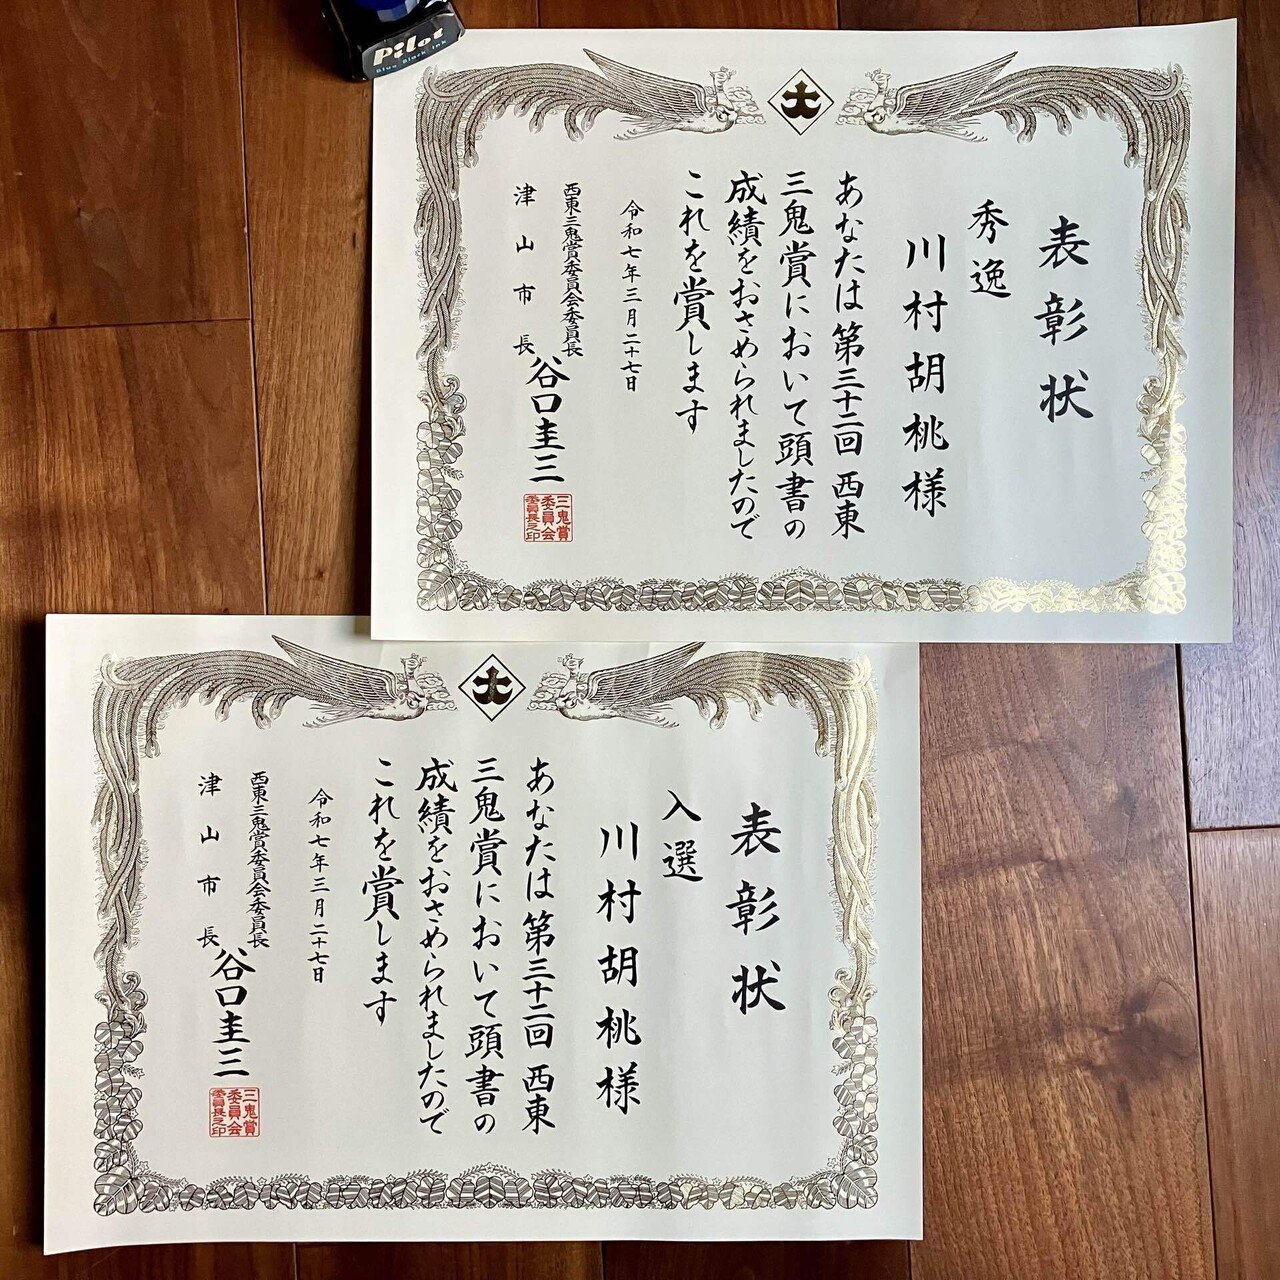 Pilot
Blue Black Ink
表彰状
秀逸
川村胡桃様
あなたは第三十二回 西東
三鬼賞において頭書の
成績をおさめられましたので
これを賞します
令和七年三月二十七日
西東三鬼賞委員会委員長
津山市長
谷口圭三
三鬼賞
委員会
委員長之印
表彰状
入選
川村胡桃様
あなたは第三十二回 西東
三鬼賞において頭書の
成績をおさめられましたので
これを賞します
令和七年三月二十七日
西東三鬼賞委員会委員長
津山市長
谷口圭三
三鬼賞
委員会
委員長之印